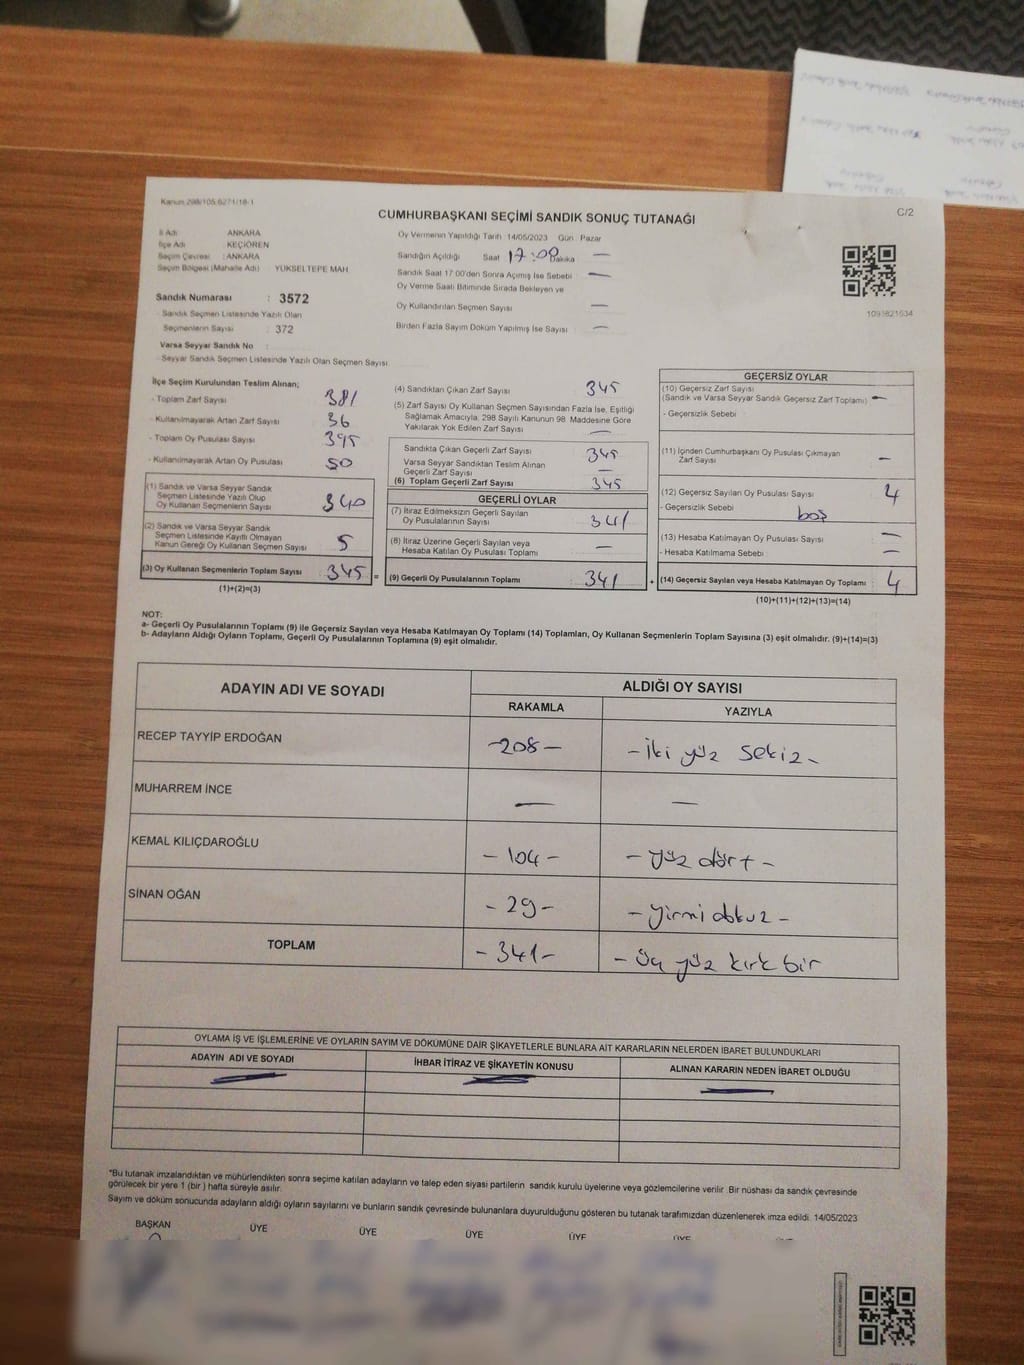 Kanun 298/105.6271/18-1
CUMHURBAŞKANI SEÇİMİ SANDIK SONUÇ TUTANAĞI
C/2
İl Adı : ANKARA
İlçe Adı : KEÇİÖREN
Seçim Çevresi : ANKARA
Seçim Bölgesi (Mahalle Adı) : YÜKSELTEPE MAH.
Sandık Numarası : 3572
- Sandık Seçmen Listesinde Yazılı Olan
Seçmenlerin Sayısı : 372
Varsa Seyyar Sandık No :
- Seyyar Sandık Seçmen Listesinde Yazılı Olan Seçmen Sayısı
Oy Vermenin Yapıldığı Tarih 14/05/2023 Gün : Pazar
Sandığın Açıldığı Saat 17:00 Dakika —
Sandık Saat 17:00'den Sonra Açılmış İse Sebebi —
Oy Verme Saati Bitiminde Sırada Bekleyen ve
Oy Kullandırılan Seçmen Sayısı —
Birden Fazla Sayım Döküm Yapılmış İse Sayısı —
İlçe Seçim Kurulundan Teslim Alınan;
- Toplam Zarf Sayısı 381
- Kullanılmayarak Artan Zarf Sayısı 36
- Toplam Oy Pusulası Sayısı 395
- Kullanılmayarak Artan Oy Pusulası 50
(1) Sandık ve Varsa Seyyar Sandık
Seçmen Listesinde Yazılı Olup
Oy Kullanan Seçmenlerin Sayısı 340
(2) Sandık ve Varsa Seyyar Sandık
Seçmen Listesinde Kayıtlı Olmayan
Kanun Gereği Oy Kullanan Seçmen Sayısı 5
(3) Oy Kullanan Seçmenlerin Toplam Sayısı 345 =
(1)+(2)=(3)
(4) Sandıktan Çıkan Zarf Sayısı 345
(5) Zarf Sayısı Oy Kullanan Seçmen Sayısından Fazla İse, Eşitliği
Sağlamak Amacıyla, 298 Sayılı Kanunun 98. Maddesine Göre
Yakılarak Yok Edilen Zarf Sayısı —
Sandıkta Çıkan Geçerli Zarf Sayısı 345
Varsa Seyyar Sandıktan Teslim Alınan
Geçerli Zarf Sayısı —
(6) Toplam Geçerli Zarf Sayısı 345
GEÇERLİ OYLAR
(7) İtiraz Edilmeksizin Geçerli Sayılan
Oy Pusulalarının Sayısı : 341
(8) İtiraz Üzerine Geçerli Sayılan veya
Hesaba Katılan Oy Pusulası Toplamı : —
(9) Geçerli Oy Pusulalarının Toplamı : 341 +
1091821634
GEÇERSİZ OYLAR
(10) Geçersiz Zarf Sayısı
(Sandık ve Varsa Seyyar Sandık Geçersiz Zarf Toplamı) —
- Geçersizlik Sebebi
(11) İçinden Cumhurbaşkanı Oy Pusulası Çıkmayan
Zarf Sayısı —
(12) Geçersiz Sayılan Oy Pusulası Sayısı 4
- Geçersizlik Sebebi boş
(13) Hesaba Katılmayan Oy Pusulası Sayısı —
- Hesaba Katılmama Sebebi —
(14) Geçersiz Sayılan veya Hesaba Katılmayan Oy Toplamı : 4
(10)+(11)+(12)+(13)=(14)
NOT:
a- Geçerli Oy Pusulalarının Toplamı (9) ile Geçersiz Sayılan veya Hesaba Katılmayan Oy Toplamı (14) Toplamları, Oy Kullanan Seçmenlerin Toplam Sayısına (3) eşit olmalıdır. (9)+(14)=(3)
b- Adayların Aldığı Oyların Toplamı, Geçerli Oy Pusulalarının Toplamına (9) eşit olmalıdır.
ADAYIN ADI VE SOYADI ALDIĞI OY SAYISI
RAKAMLA YAZIYLA
RECEP TAYYİP ERDOĞAN -208- -iki yüz sekiz-
MUHARREM İNCE — —
KEMAL KILIÇDAROĞLU -104- -yüz dört-
SİNAN OĞAN -29- -yirmi dokuz-
TOPLAM -341- -üç yüz kırk bir
OYLAMA İŞ VE İŞLEMLERİNE VE OYLARIN SAYIM VE DÖKÜMÜNE DAİR ŞİKAYETLERLE BUNLARA AİT KARARLARIN NELERDEN İBARET BULUNDUKLARI
ADAYIN ADI VE SOYADI İHBAR İTİRAZ VE ŞİKAYETİN KONUSU ALINAN KARARIN NEDEN İBARET OLDUĞU
*Bu tutanak imzalandıktan ve mühürlendikten sonra seçime katılan adayların ve talep eden siyasi partilerin sandık kurulu üyelerine veya gözlemcilerine verilir. Bir nüshası da sandık çevresinde
görülecek bir yere 1 (bir) hafta süreyle asılır.
Sayım ve döküm sonucunda adayların aldığı oyların sayılarını ve bunların sandık çevresinde bulunanlara duyurulduğunu gösteren bu tutanak tarafımızdan düzenlenerek imza edildi. 14/05/2023
BAŞKAN ÜYE ÜYE ÜYE ÜYE ÜYE